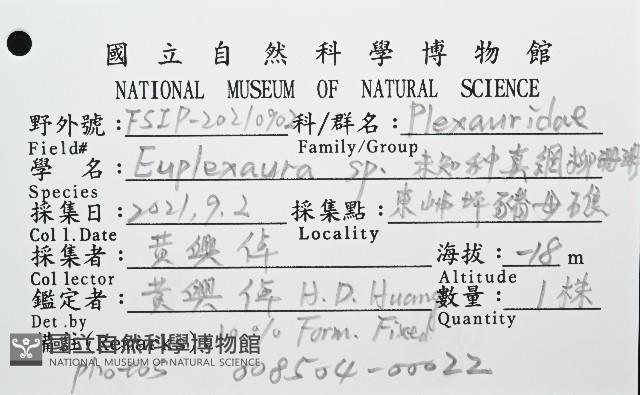 國立自然科學博物館
NATIONAL MUSEUM OF NATURAL SCIENCE
野外號：FSIP-20210902 科/群名：Plexauridae
Field# Family/Group
學 名：Euplexaura sp. 未知種真網柳珊瑚
Species
採集日：2021.9.2 採集點：東峠坪豬母礁
Coll.Date Locality
採集者：黃興倬 海拔：-18 m
Collector Altitude
鑑定者：黃興倬 H. D. Huang 數量：1株
Det.by Quantity
備註(Remarks) 10% Form. Fixed
國立自然科學博物館
NATIONAL MUSEUM OF NATURAL SCIENCE
photos 008504-00022